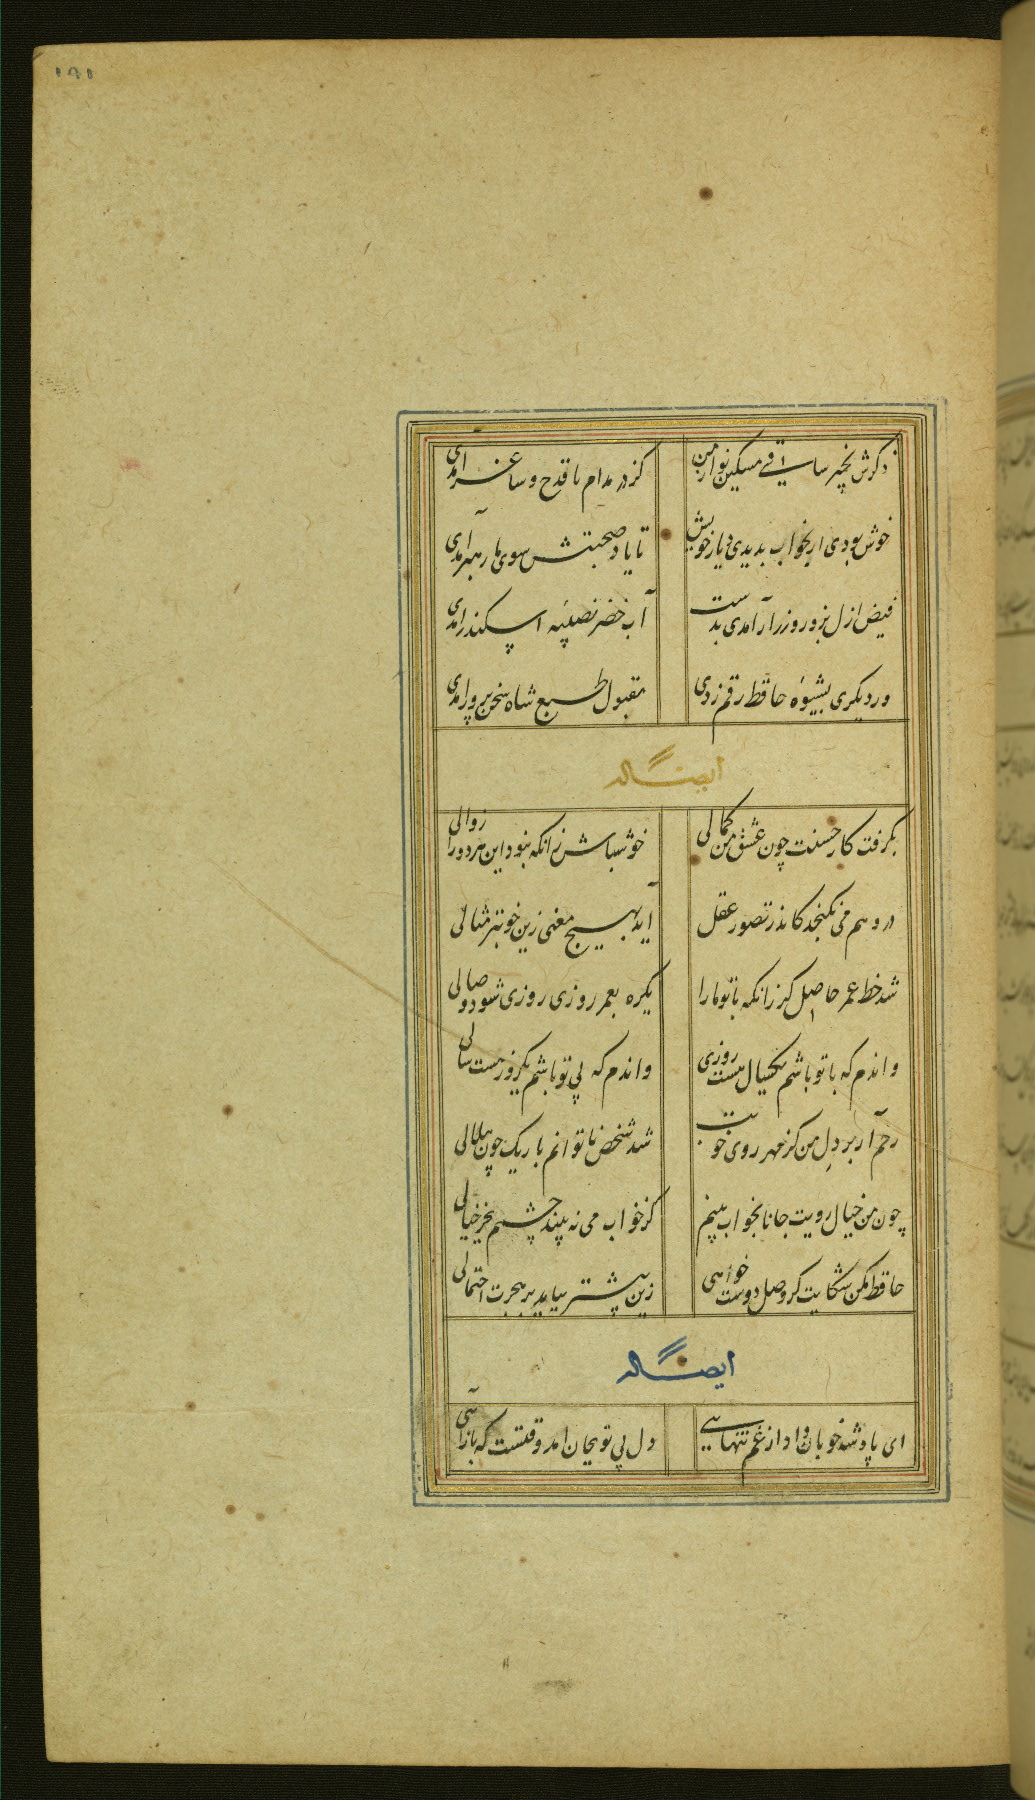 ۱۸۱
ذکرش بخیر ساقی مسکین نواز من
کز در مدام با قدح و ساغر آمدی
خوش بودی ار بخواب بدیدی دیار خویش
تا یاد صحبتش سوی ما رهبر آمدی
فیض ازل بزور و زر ار آمدی بدست
آب خضر نصیبه اسکندر آمدی
ور دیگری بشیوه حافظ رقم زدی
مقبول طبع شاه سخن پرور آمدی
ایضاً له
بگرفت کار حسنت چون عشق من کمالی
خوشباش زانکه نبود این هر دو را زوالی
در وهم می نگنجد کاندر تصور عقل
آید بهیچ معنی زین خوبتر مثالی
شد خط عمر حاصل گر زانکه با تو ما را
یکره بعمر روزی روزی شود وصالی
واندم که با تو باشم یکسال هست روزی
واندم که بی تو باشم یکروز هست سالی
رحم آر بر دل من کز مهر روی خوبت
شد شخص ناتوانم باریک چون هلالی
چون من خیال رویت جانا بخواب بینم
کز خواب می نه بیند چشمم بجز خیالی
حافظ مکن شکایت گر وصل دوست خواهی
زین پیشتر بباید بر هجرت احتمالی
ایضاً له
ای پادشه خوبان داد از غم تنهایی
دل بی تو بجان امد وقتست که باز آئی